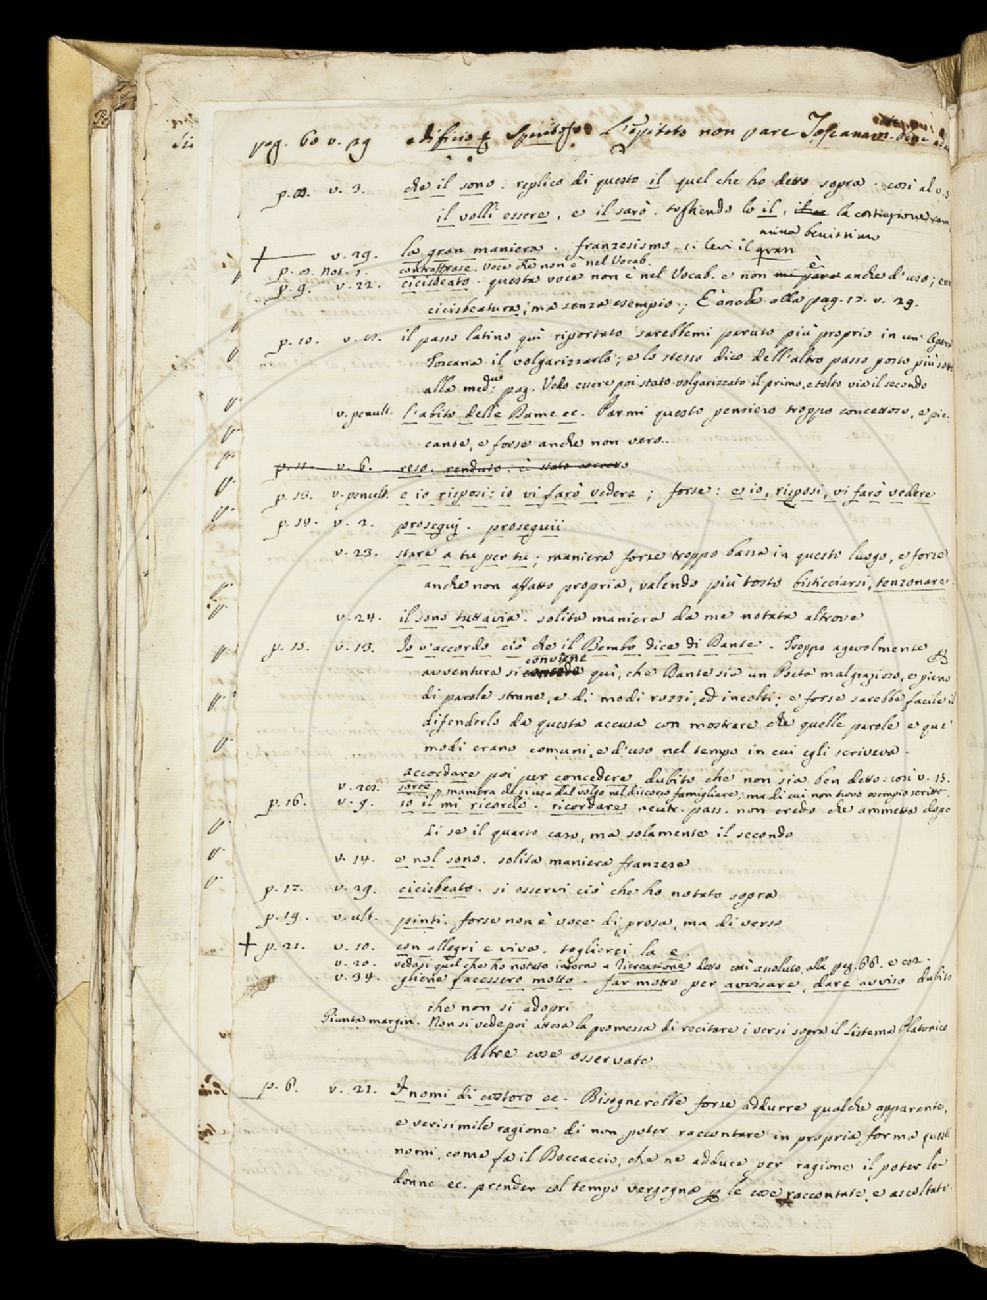 pag. 60 v. 29 edificio Spiritoso L'epiteto non pare Toscanam.
v. 3. che il sono. replico di questo il quel che ho detto sopra. così al v. 5
il volli essere, e il sarò. togliendo lo il, la costruzione
benissimo
+ v. 29. la gran maniera. franzesismo. si levi il gran
p. Not. 1. contraffrase. voce che non è nel Vocab.
p. 9. v. 22. cicisbeato. questa voce non è nel Vocab. e non è anche d'uso;
cicisbeatura, ma senza esempio; E anche alla pag. 17. v. 29.
p. 10. v. il passo latino quì riportato sarebbemi paruto più proprio in un'
Toscana il volgarizzarlo; e lo stesso dico dell'altro passo posto più sotto
alla med.ma pag. Vedo essere poi stato volgarizzato il primo, e tolto via il secondo
v. penult. l'abito delle Dame ec. Parmi questo pensiero troppo concettoso, e pic-
cante, e forse anche non vero.
p. 11. v. 6. reso. renduto: è stato corretto
p. 13. v. penult. e io risposi: io vi farò vedere; forse: es io, risposi, vi farò vedere
p. 14. v. 2. proseguj. proseguii
v. 23. stare a tu per tu; maniera forse troppo bassa in questo luogo, e forse
anche non affatto propria, valendo più tosto bisticciarsi, tenzonare.
v. 24. il sono tuttavia. solita maniera da me notata altrove
p. 15. v. 13. Io v'accordo ciò che il Bembo dice di Dante. Troppo agevolmente
conviene
avventura si quì, che Dante sia un Poeta malgrazioso, e pieno
di parole strane, e di modi rozzi, ed incolti; e forse sarebbe facile il
difenderlo da questa accusa con mostrare che quelle parole e que'
modi erano comuni, e d'uso nel tempo in cui egli scriveva.
accordare poi per concedere dubito che non sia ben detto: così v. 15.
v. sorte, maniera che si usa dal volgo nel discorso famigliare; ma di cui non trovo esempio scritto.
p. 16. v. 9. io il mi ricordo. ricordare neutr. pass. non credo che ammetta dopo
di se il quarto caso, ma solamente il secondo
v. 14. e nol sono. solita maniera franzese
p. 17. v. 29. cicisbeato. si osservi ciò che ho notato sopra
p. 19. v. ult. pinti. forse non è voce di prosa, ma di verso
+ p. 21. v. 10. con allegri e vivo. toglierei la e.
v. 20. vedasi quel che ho notato intorno a Ricreazione detto così assoluto, alla pag. 66. e
v. 34. gliene facessero motto. far motto per avvisare, dare avviso dubito
che non si adopri
Giunta margin. Non si vede poi attesa la promessa di recitare i versi sopra il sistema Platonico
Altre cose osservate
p. 6. v. 21. I nomi di costoro ec. Bisognerebbe forse addurre qualche apparente,
e verisimile ragione di non poter raccontare in propria forma questi
nomi, come fa il Boccaccio, che ne adduce per ragione il poter le
donne ec. prender col tempo vergogna le cose raccontate, e ascoltate